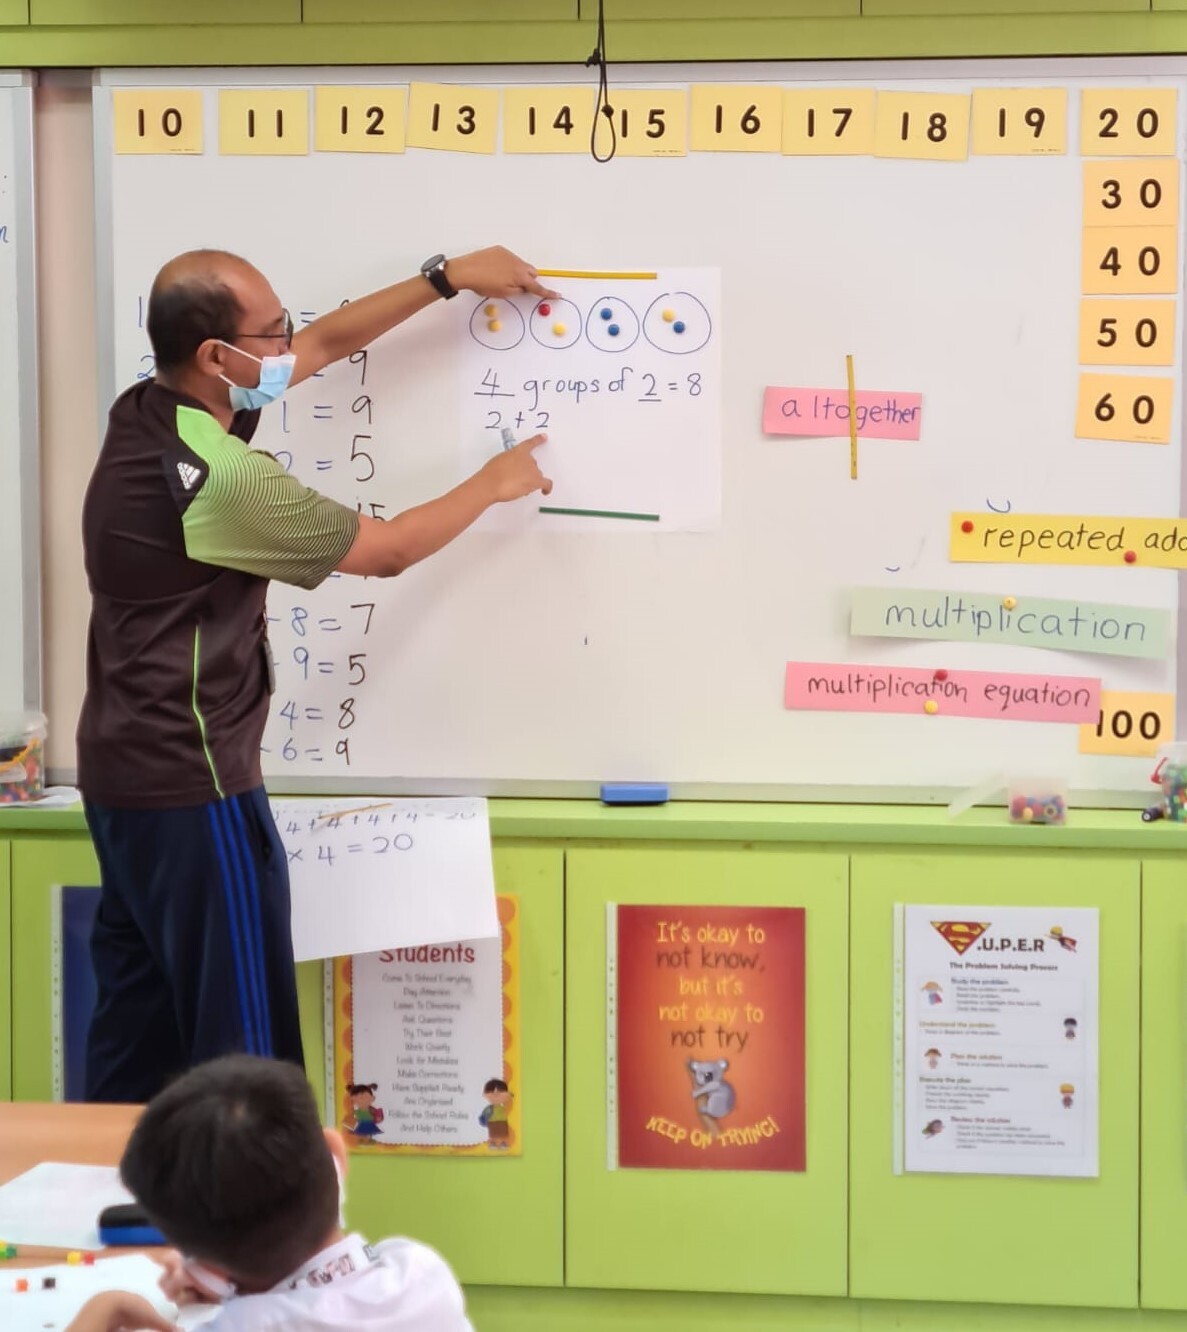 10 11 12 13 14 15 16 17 18 19 20
30
40
50
60
100
= 9
1 = 9
= 5
8 = 7
9 = 5
4 = 8
6 = 9
4 groups of 2 = 8
2 + 2
altogether
repeated
multiplication
multiplication equation
4 + 4 + 4 + 4 = 20
× 4 = 20
Students
Come To School Everyday
Pay Attention
Listen To Directions
Ask Questions
Try Their Best
Work Quietly
Look for Mistakes
Make Corrections
Have Supplies Ready
Are Organised
Follow the School Rules
And Help Others
It's okay to
not know,
but it's
not okay to
not try
KEEP ON TRYING!
S.U.P.E.R
The Problem Solving Process
Study the problem
Understand the problem
Plan the solution
Execute the plan
Review the solution